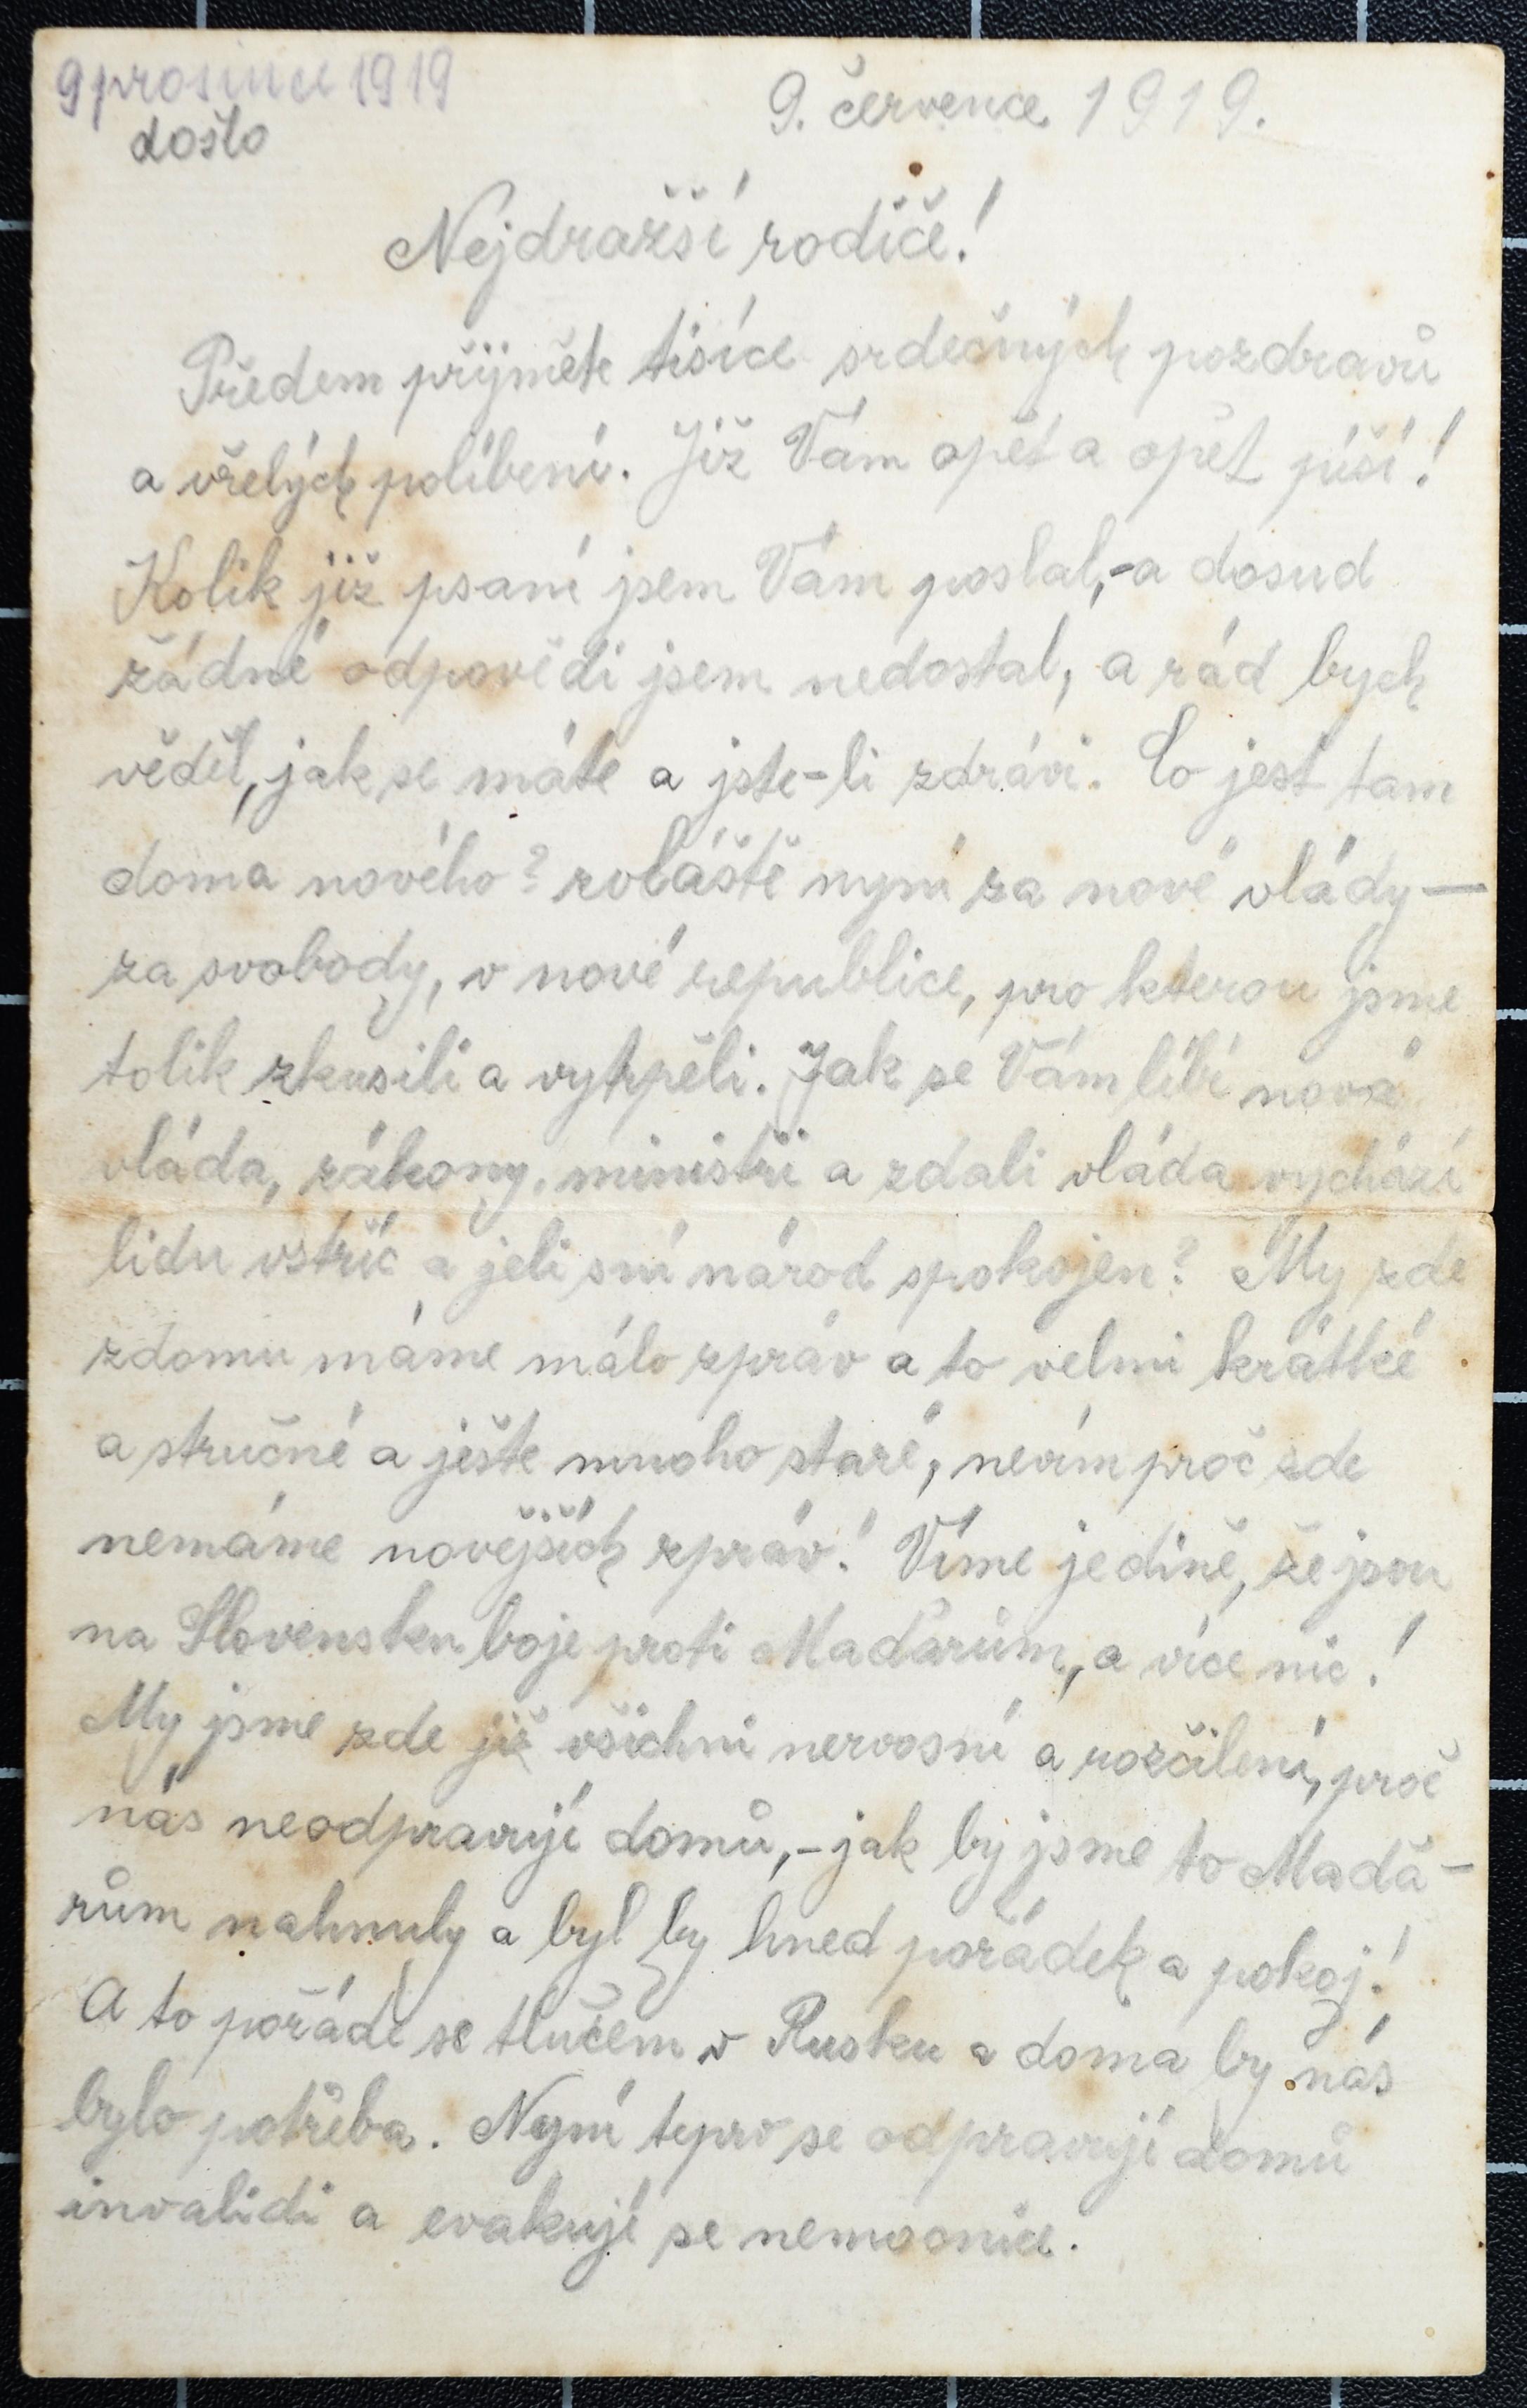 9 prosince 1919
došlo
9. července 1919.
Nejdražší rodiče!
Předem přijměte tisíce srdečných pozdravů
a vřelých políbení. Již Vám opět a opět píši!
Kolik již psaní jsem Vám poslal,-a dosud
žádné odpovědi jsem nedostal, a rád bych
věděl, jak se máte a jste-li zdrávi. Co jest tam
doma nového? zvláště nyní za nové vlády —
za svobody, v nové republice, pro kterou jsme
tolik zkusili a vytrpěli. Jak se Vám líbí nová
vláda, zákony, ministři a zdali vláda vychází
lidu vstříc a jeli s ní národ spokojen? My zde
zdomu máme málo zpráv a to velmi krátké
a stručné a ješte mnoho staré, nevím proč zde
nemáme novějších zpráv! Víme jedině, že jsou
na Slovensku boje proti Maďarům, a více nic!
My jsme zde již všichni nervosní a rozčilení, proč
nás neodpravují domů,-jak by jsme to Maďa-
rům nahnuly a byl by hned pořádek a pokoj!
A to pořádě se tlučem v Rusku a doma by nás
bylo potřeba. Nyní teprv se odpravují domů
invalidi a evakují se nemocnice.